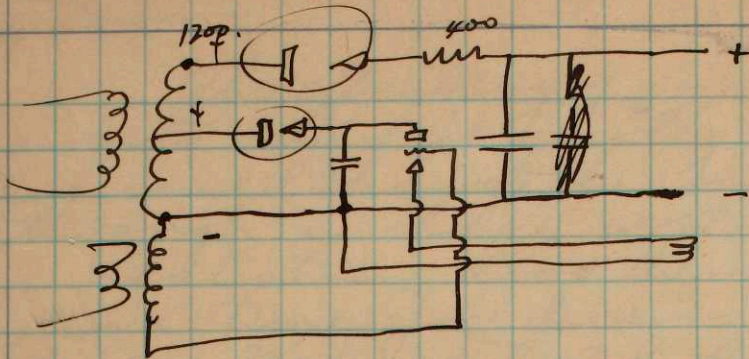 1200.
400
+
+
+
-
-